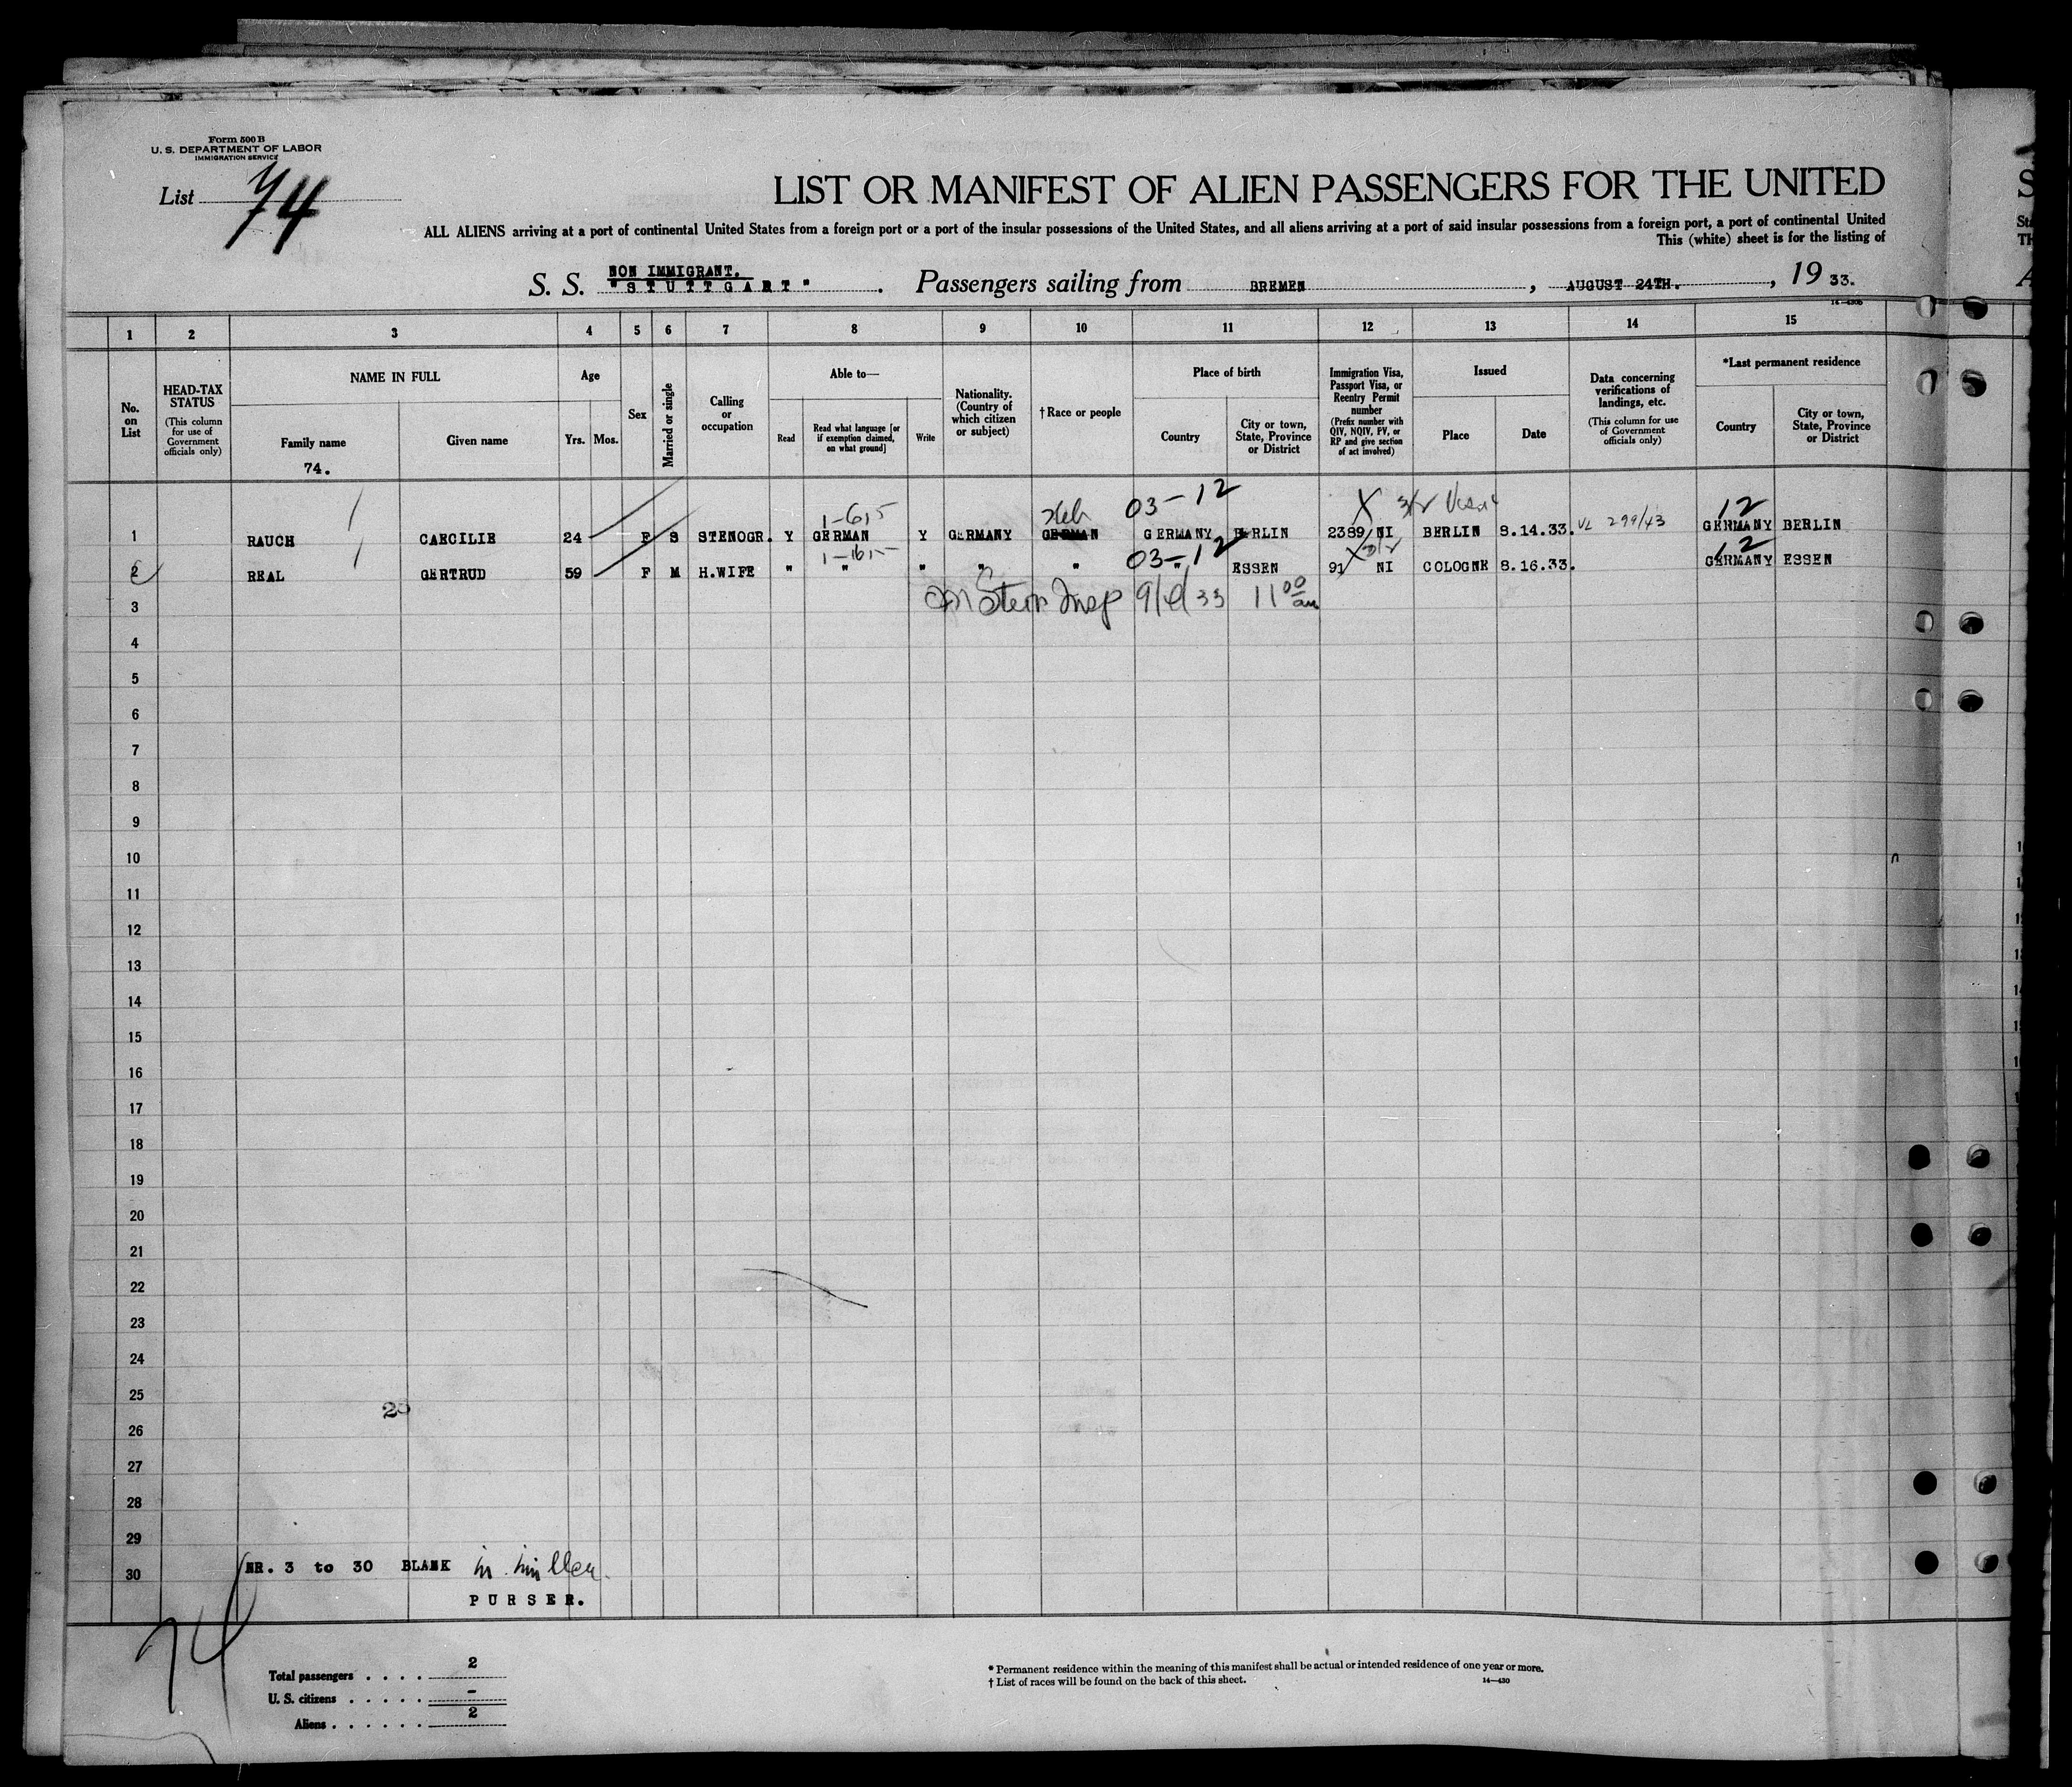 Form 500 B
U. S. DEPARTMENT OF LABOR
IMMIGRATION SERVICE
List 74
LIST OR MANIFEST OF ALIEN PASSENGERS FOR THE UNITED
ALL ALIENS arriving at a port of continental United States from a foreign port or a port of the insular possessions of the United States, and all aliens arriving at a port of said insular possessions from a foreign port, a port of continental United
This (white) sheet is for the listing of
NON IMMIGRANT.
S. S. "STUTTGART". Passengers sailing from BREMEN, AUGUST 24TH., 19 33.
1 2 3 4 5 6 7 8 9 10 11 12 13 14 15
No. on List
HEAD-TAX STATUS (This column for use of Government officials only)
NAME IN FULL
Family name
Given name
74.
Age
Yrs. Mos.
Sex
Married or single
Calling or occupation
Able to—
Read
Read what language [or if exemption claimed, on what ground]
Write
Nationality. (Country of which citizen or subject)
† Race or people
Place of birth
Country
City or town, State, Province or District
Immigration Visa, Passport Visa, or Reentry Permit number (Prefix number with QIV, NQIV, PV, or RP and give section of act involved)
Issued
Place
Date
Data concerning verifications of landings, etc. (This column for use of Government officials only)
*Last permanent residence
Country
City or town, State, Province or District
1-615 Heb 03-12 X 12
1 RAUCH CAECILIE 24 F S STENOGR. Y GERMAN Y GERMANY GERMAN GERMANY BERLIN 2389 NI BERLIN 8.14.33. VL 299/43 GERMANY BERLIN
1-615 03-12 X 12
2 REAL GERTRUD 59 F M H.WIFE " " " " " " ESSEN 91 NI COLOGNE 8.16.33. GERMANY ESSEN
3 Stern Insp 9/4/33 11 00 am
4
5
6
7
8
9
10
11
12
13
14
15
16
17
18
19
20
21
22
23
24
25
26
27
28
29
30 NR. 3 to 30 BLANK
PURSER.
74
Total passengers . . . . 2
U. S. citizens . . . . . -
Aliens . . . . . . 2
* Permanent residence within the meaning of this manifest shall be actual or intended residence of one year or more.
† List of races will be found on the back of this sheet.
14—430